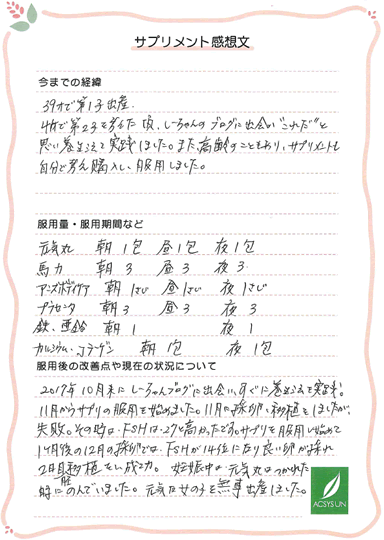 サプリメント感想文
今までの経緯
39才で第1子出産。
41才で第2子を考えた頃、しーちゃんのブログに出会い"これだ"と
思い巻き方えて実践しました。また高齢のこともあり、サプリメントも
自分で考え購入し、服用しました。
服用量・服用期間など
元気丸 朝 1包 昼 1包 夜 1包
馬力 朝 3 昼 3 夜 3
朝 1さじ 昼 1さじ 夜 1さじ
プラセンタ 朝 3 昼 3 夜 3
鉄、亜鉛 朝 1 夜 1
カルシウム、コラーゲン 朝 1包 夜 1包
服用後の改善点や現在の状況について
2017年10月末にしーちゃんブログに出会い、すぐに
を実践。
11月からサプリの服用を始めました。11月の採卵、移植をしましたが、
失敗。その時は、FSHは27と高かったです。サプリを服用し始めて
1ヶ月後の12月の採卵では、FSHが14位になり良い卵が採れ
2日目移植をし成功。 妊娠中は、元気丸はつかれた
時にのんでいました。元気な女の子を無事出産しました。
ACSYSUN